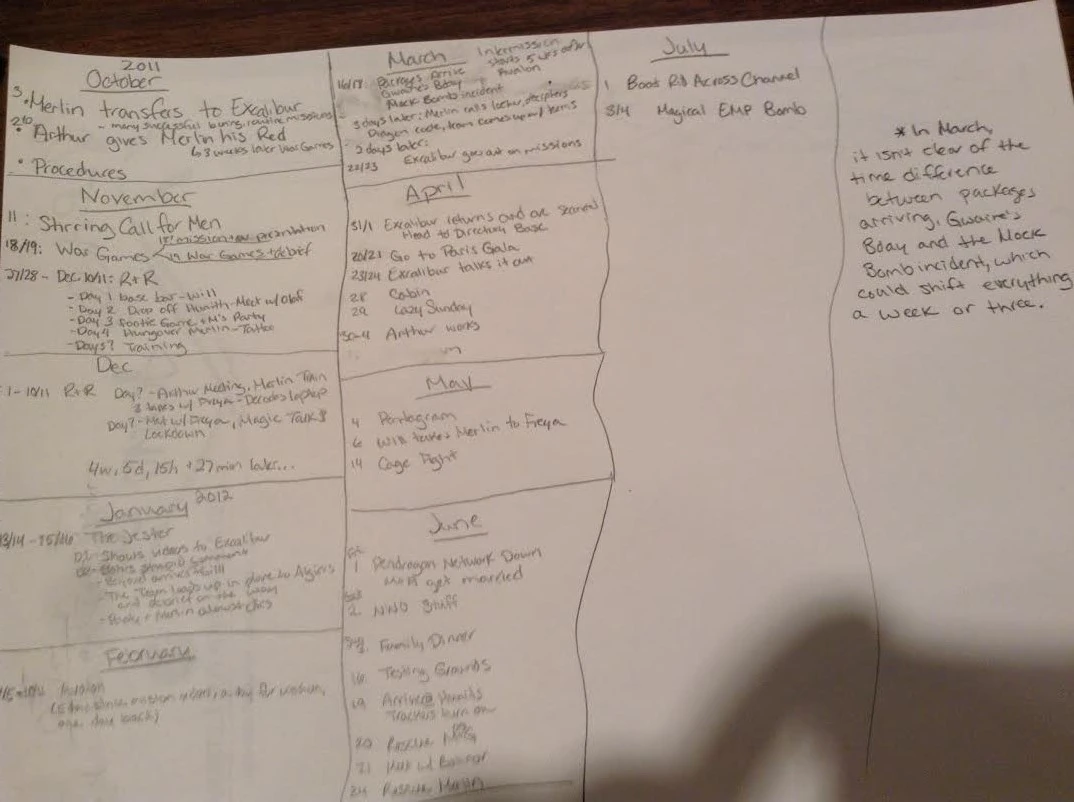 2011
October
Merlin transfers to Excalibur
- many successful routine missions
Arthur gives Merlin his Red
↳ 3 weeks later War Games
Procedures
November
11: Stirring Call for Men
18/19: War Games
War Games + debrief
27/28 - Dec 10/11: R+R
- Day 1 base bar - Will
- Day 2 Drop off Hunith - Meet w/ Olaf
- Day 3 Footie Game + M's Party
- Day 4 Hungover Merlin - Tattoo
- Days? Training
Dec
1-10/11 R+R Day? - Arthur Meeting, Merlin Train
w/ Freya - Decodes laptop
Day? - Met w/ Freya, Magic Talks
Lockdown
4w, 5d, 15h + 27 min later...
January 2012
The Jester
D1 - Shows videos to Excalibur
- The Team loads up in plane to Algiers
and debrief on the way
February
Avalon
one day back)
March
Intermission
starts 5 wks after
Avalon
16/17 Packages Arrive
Gwaine's Bday
Mock Bomb incident
3 days later: Merlin deciphers
Dragon code, team comes up w/ terms
3 days later:
22/23 Excalibur goes out on missions
April
31/1 Excalibur returns and are
Head to Directory Base
20/21 Go to Paris Gala
23/24 Excalibur talks it out
28 Cabin
29 Lazy Sunday
30-4 Arthur works
May
4 Pentagram
6 Will takes Merlin to Freya
14 Cage Fight
June
1 Pendragon Network Down
get married
2 NWO Stuff
Family Dinner
16 Testing Grounds
19 Arrive @ Hunith's
Trackers turn on
20 Rescue
21 Meet w/ Balinor
24 Merlin
July
1 Boat Rid Across Channel
3/4 Magical EMP Bomb
* In March,
it isn't clear of the
time difference
between packages
arriving, Gwaine's
Bday and the Mock
Bomb incident, which
could shift everything
a week or three.